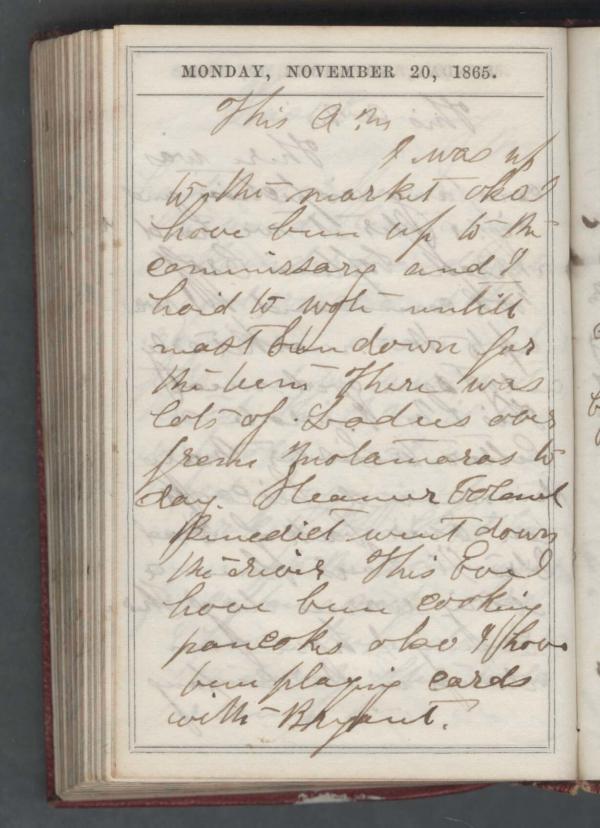 MONDAY, NOVEMBER 20, 1865.
This A.M
I was up
to the market also I
have been up to the
commissary and I
haid to wate untill
most sundown for
the them There was
lots of Ladies over
from Matamoras to
day. Steamer Colonel
Benedict went down
the river This Eve I
have been cooking
pancakes also I have
been playing cards
with Bryant.